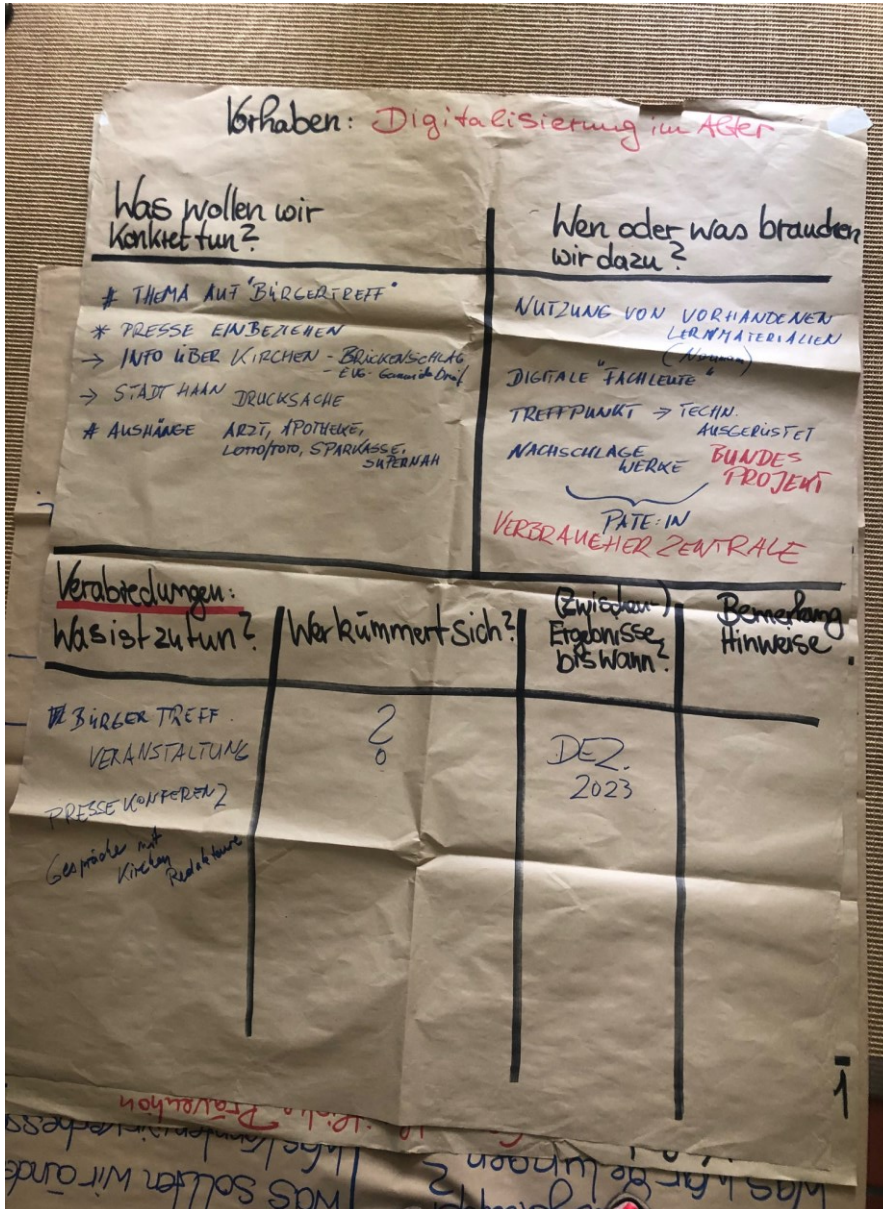 Vorhaben: Digitalisierung im Alter
Was wollen wir
Konkret tun?
# THEMA AUF "BÜRGERTREFF"
* PRESSE EINBEZIEHEN
→ INFO ÜBER KIRCHEN - BRÜCKENSCHLAG
- EVG. Gemeindebrief
→ STADT HAAN DRUCKSACHE
# AUSHÄNGE ARZT, APOTHEKE,
LOTTO/TOTO, SPARKASSE,
SUPERNAH
Wen oder was brauchen
wir dazu?
NUTZUNG VON VORHANDENEN
LERNMATERIALIEN
DIGITALE "FACHLEUTE"
TREFFPUNKT → TECHN.
AUSGERÜSTET
NACHSCHLAGE
WERKE
BUNDES
PROJEKT
PATE:IN
VERBRAUCHER ZENTRALE
Verabredungen:
Was ist zu tun?
Wer kümmert sich?
(Zwischen-)
Ergebnisse
bis wann?
Bemerkung
Hinweise
BÜRGER TREFF
VERANSTALTUNG
PRESSEKONFERENZ
Gespräche mit
Kirchen
Redakteure
?
DEZ.
2023
1
Prävention
was sollten wir